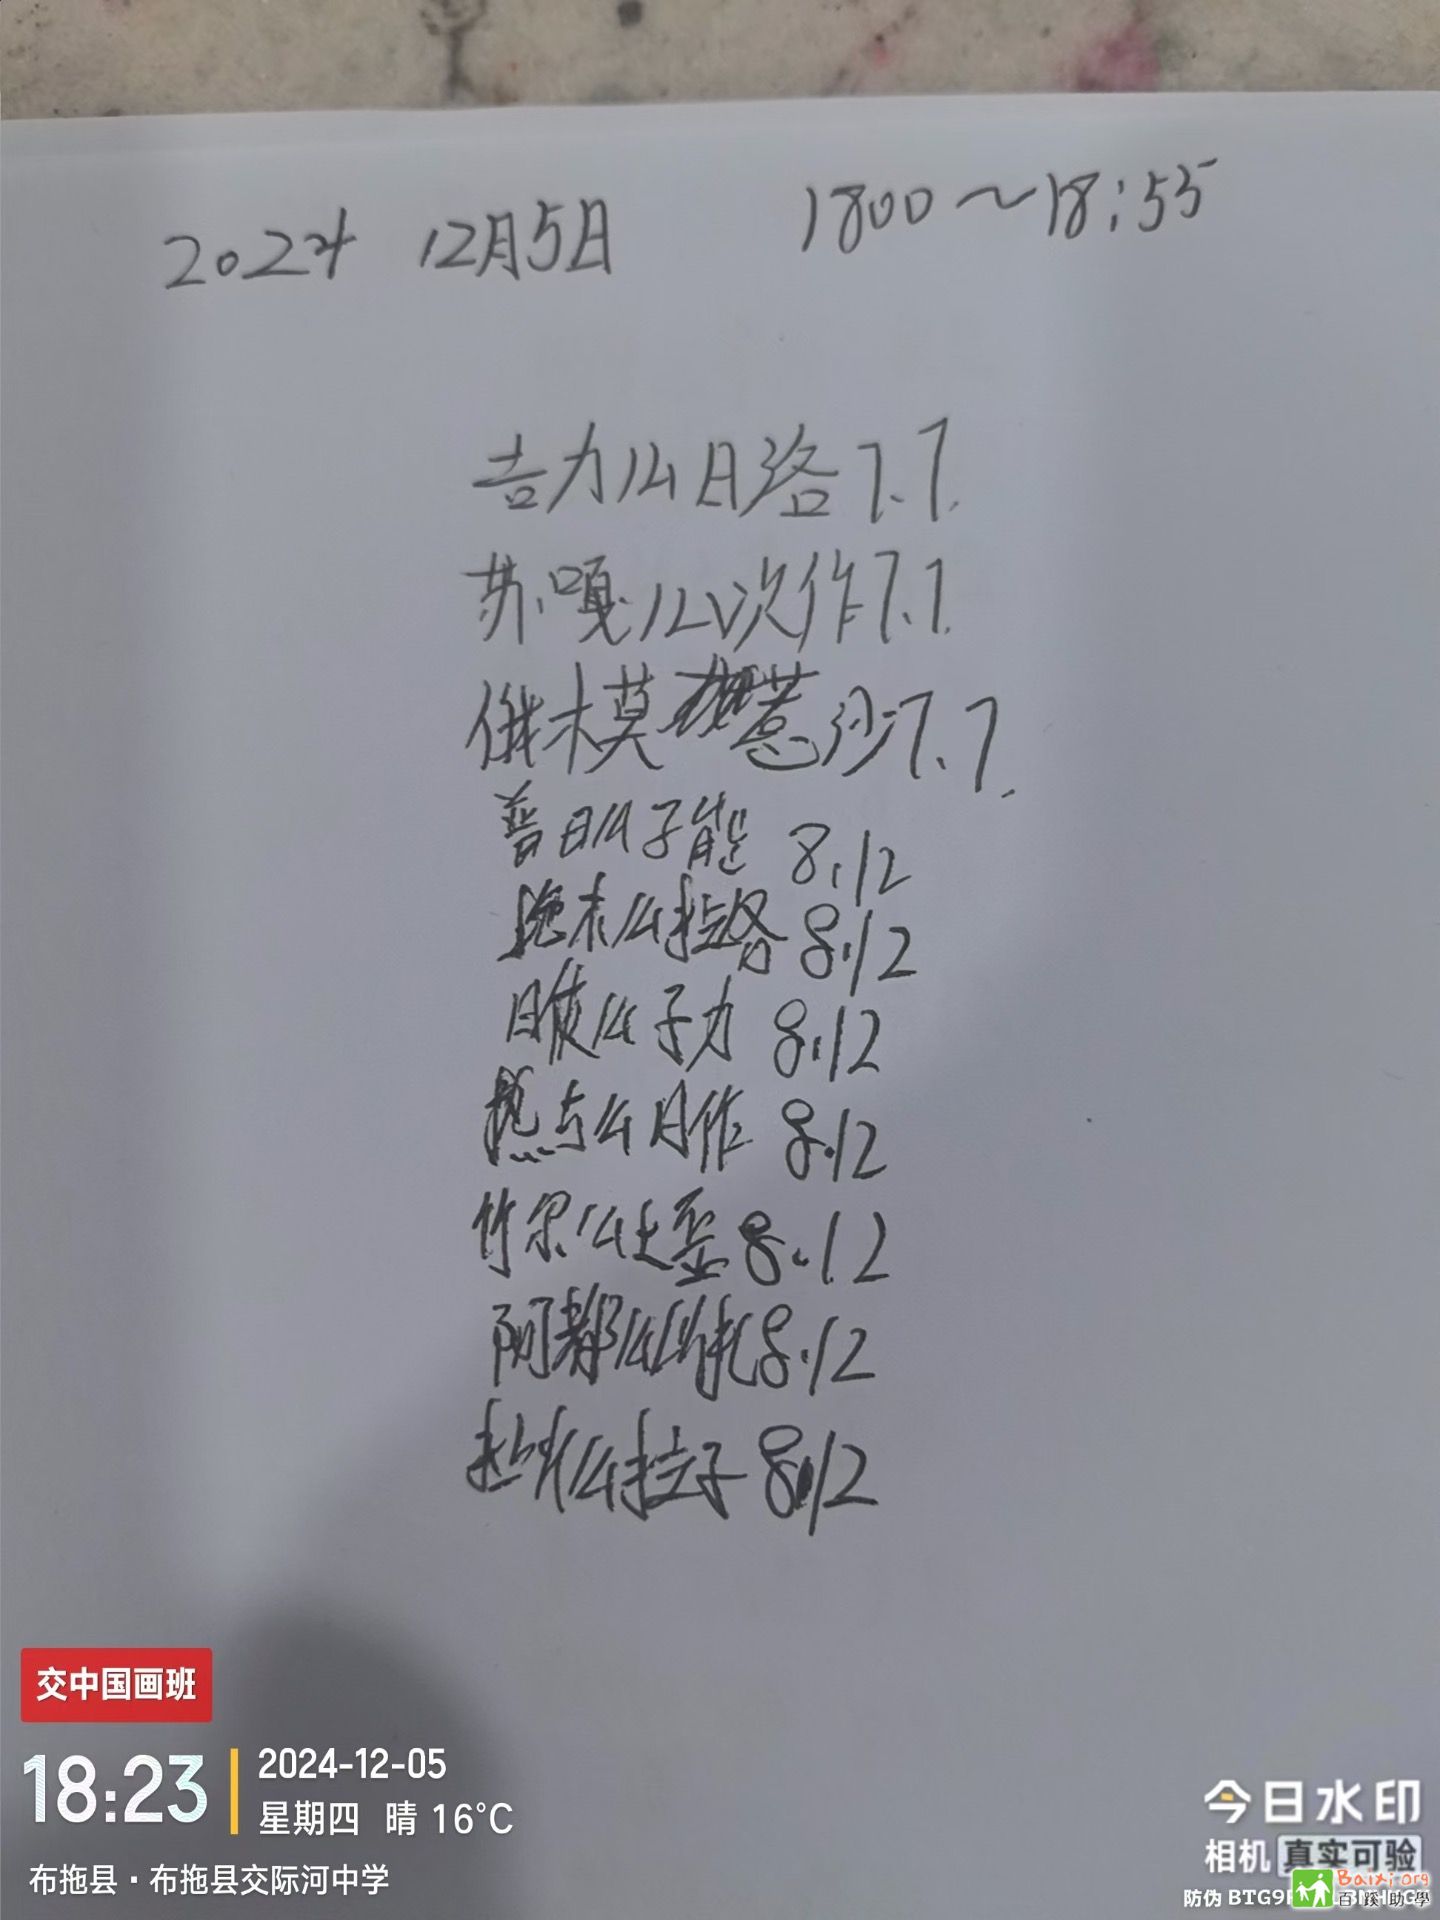 2024 12月5日 1800～18:55
吉力么日洛7.7.
苏嘎么次作7.7.
俄木莫惹沙7.7.
普日么子能 8.12
么拉各 8.12
么子力 8.12
热与么日作 8.12
竹尔么 8.12
阿都么 8.12
么拉子 8.12
交中国画班
18:23
2024-12-05
星期四 晴 16°C
布拖县·布拖县交际河中学
今日水印
相机 真实可验
防伪
Baixi.org
百蹊助學